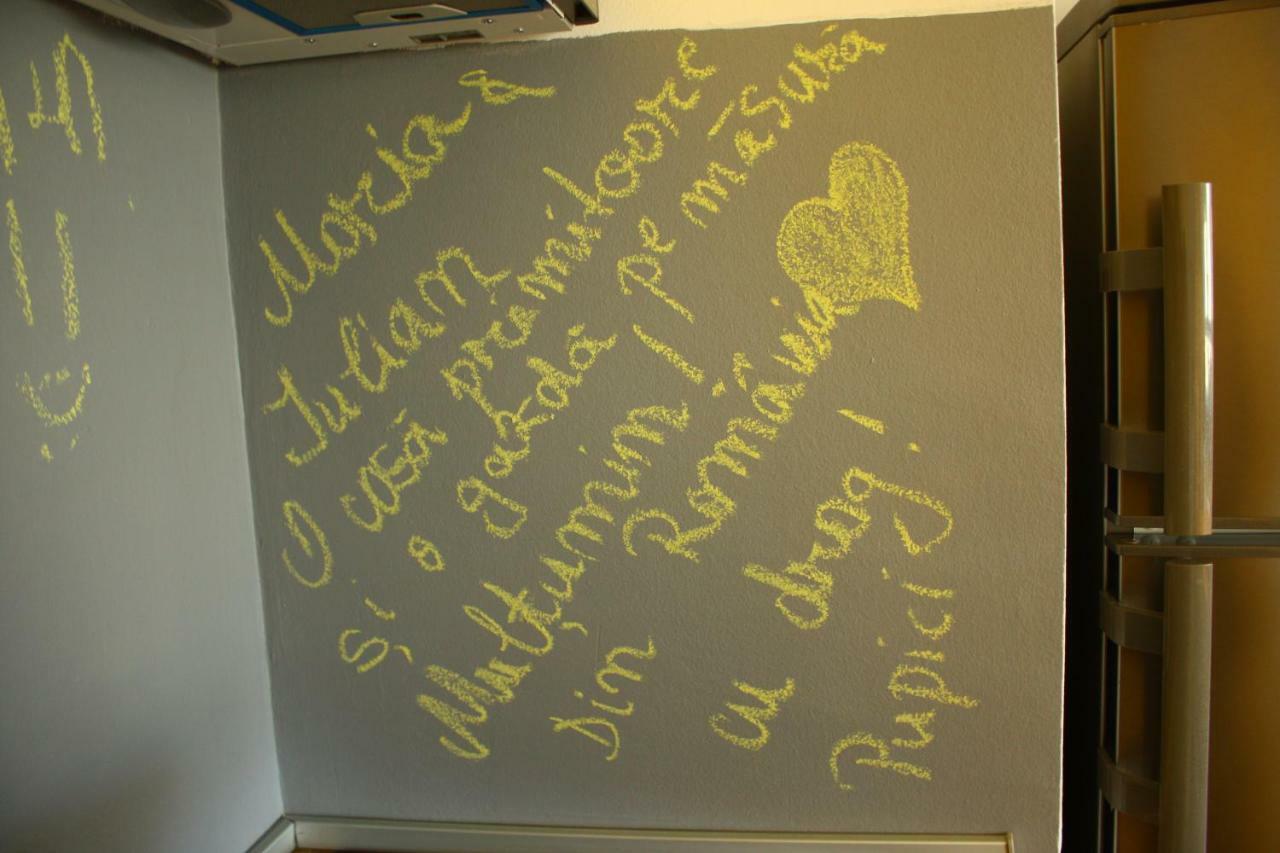 Maria &
Iulian
O casă primitoare
Și o gazdă pe măsură
Mulțumim!
Din România
cu drag!
Pupici